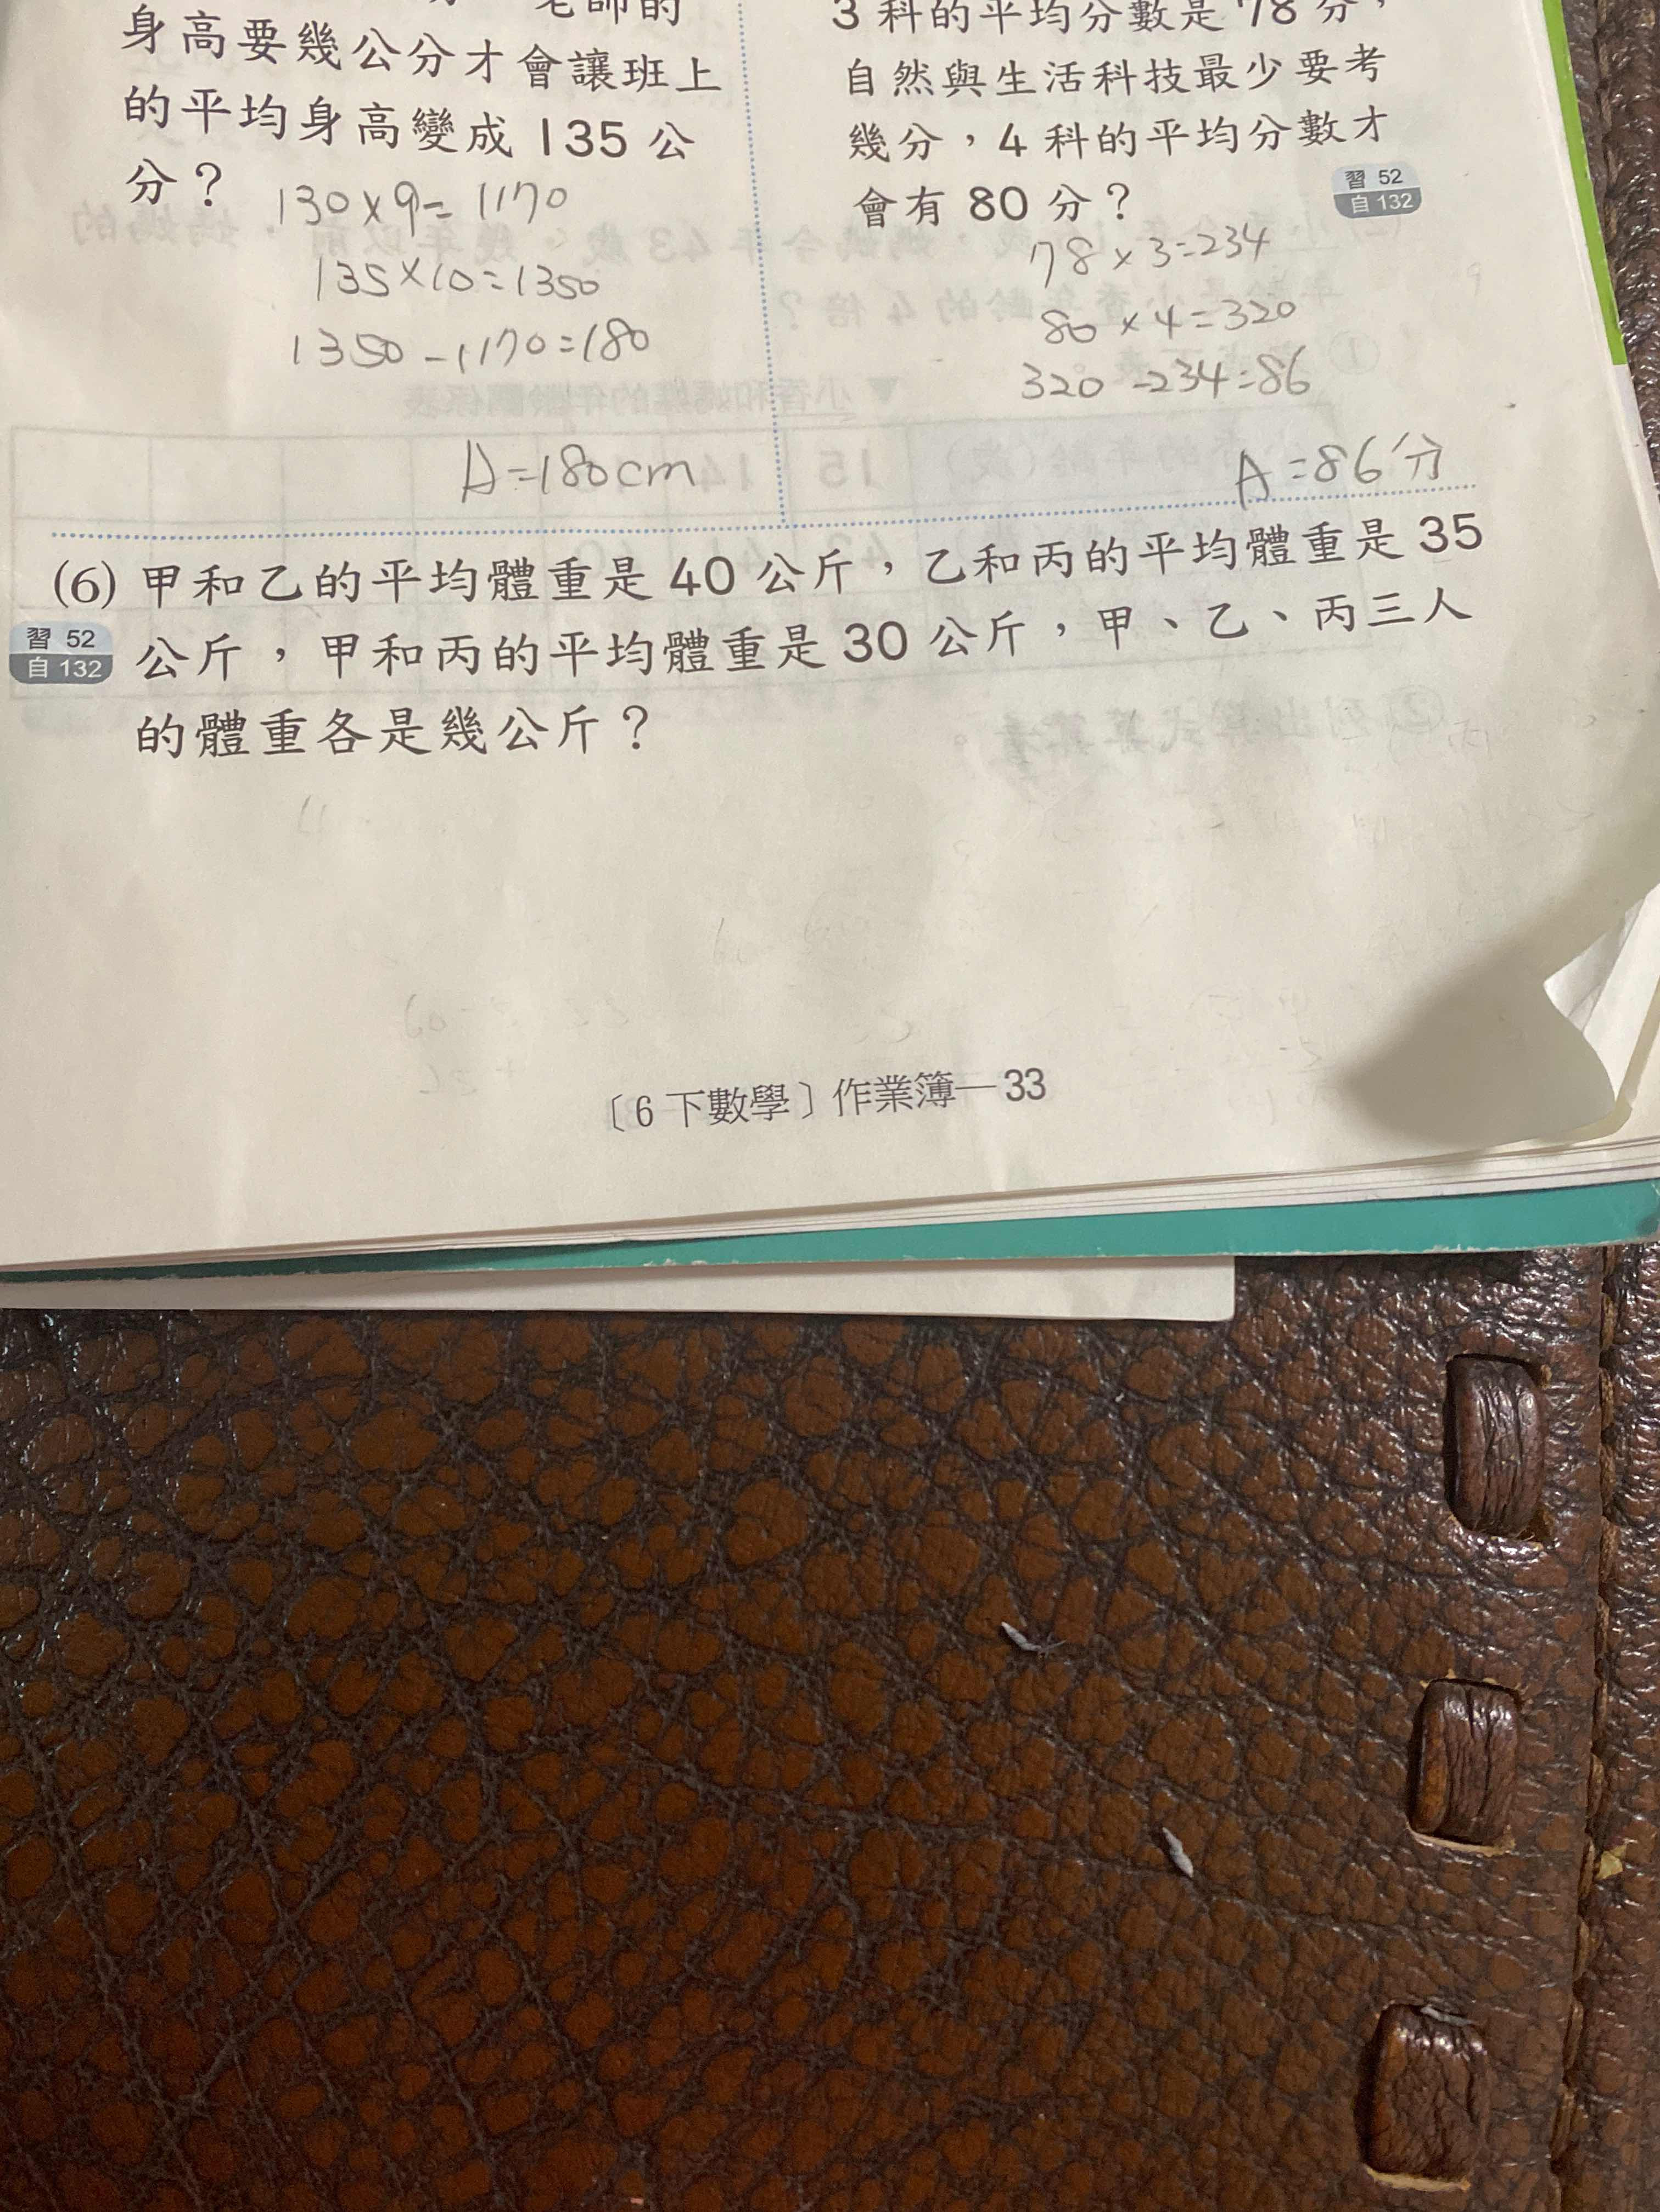 老師的
身高要幾公分才會讓班上
的平均身高變成 135 公
分？
130×9=1170
135×10=1350
1350-1170=180
A=180cm
3 科的平均分數是 78 分，
自然與生活科技最少要考
幾分，4 科的平均分數才
會有 80 分？
習 52
自 132
78×3=234
80×4=320
320-234=86
A=86分
(6) 甲和乙的平均體重是 40 公斤，乙和丙的平均體重是 35
習 52
自 132
公斤，甲和丙的平均體重是 30 公斤，甲、乙、丙三人
的體重各是幾公斤？
〔6 下數學〕作業簿—33